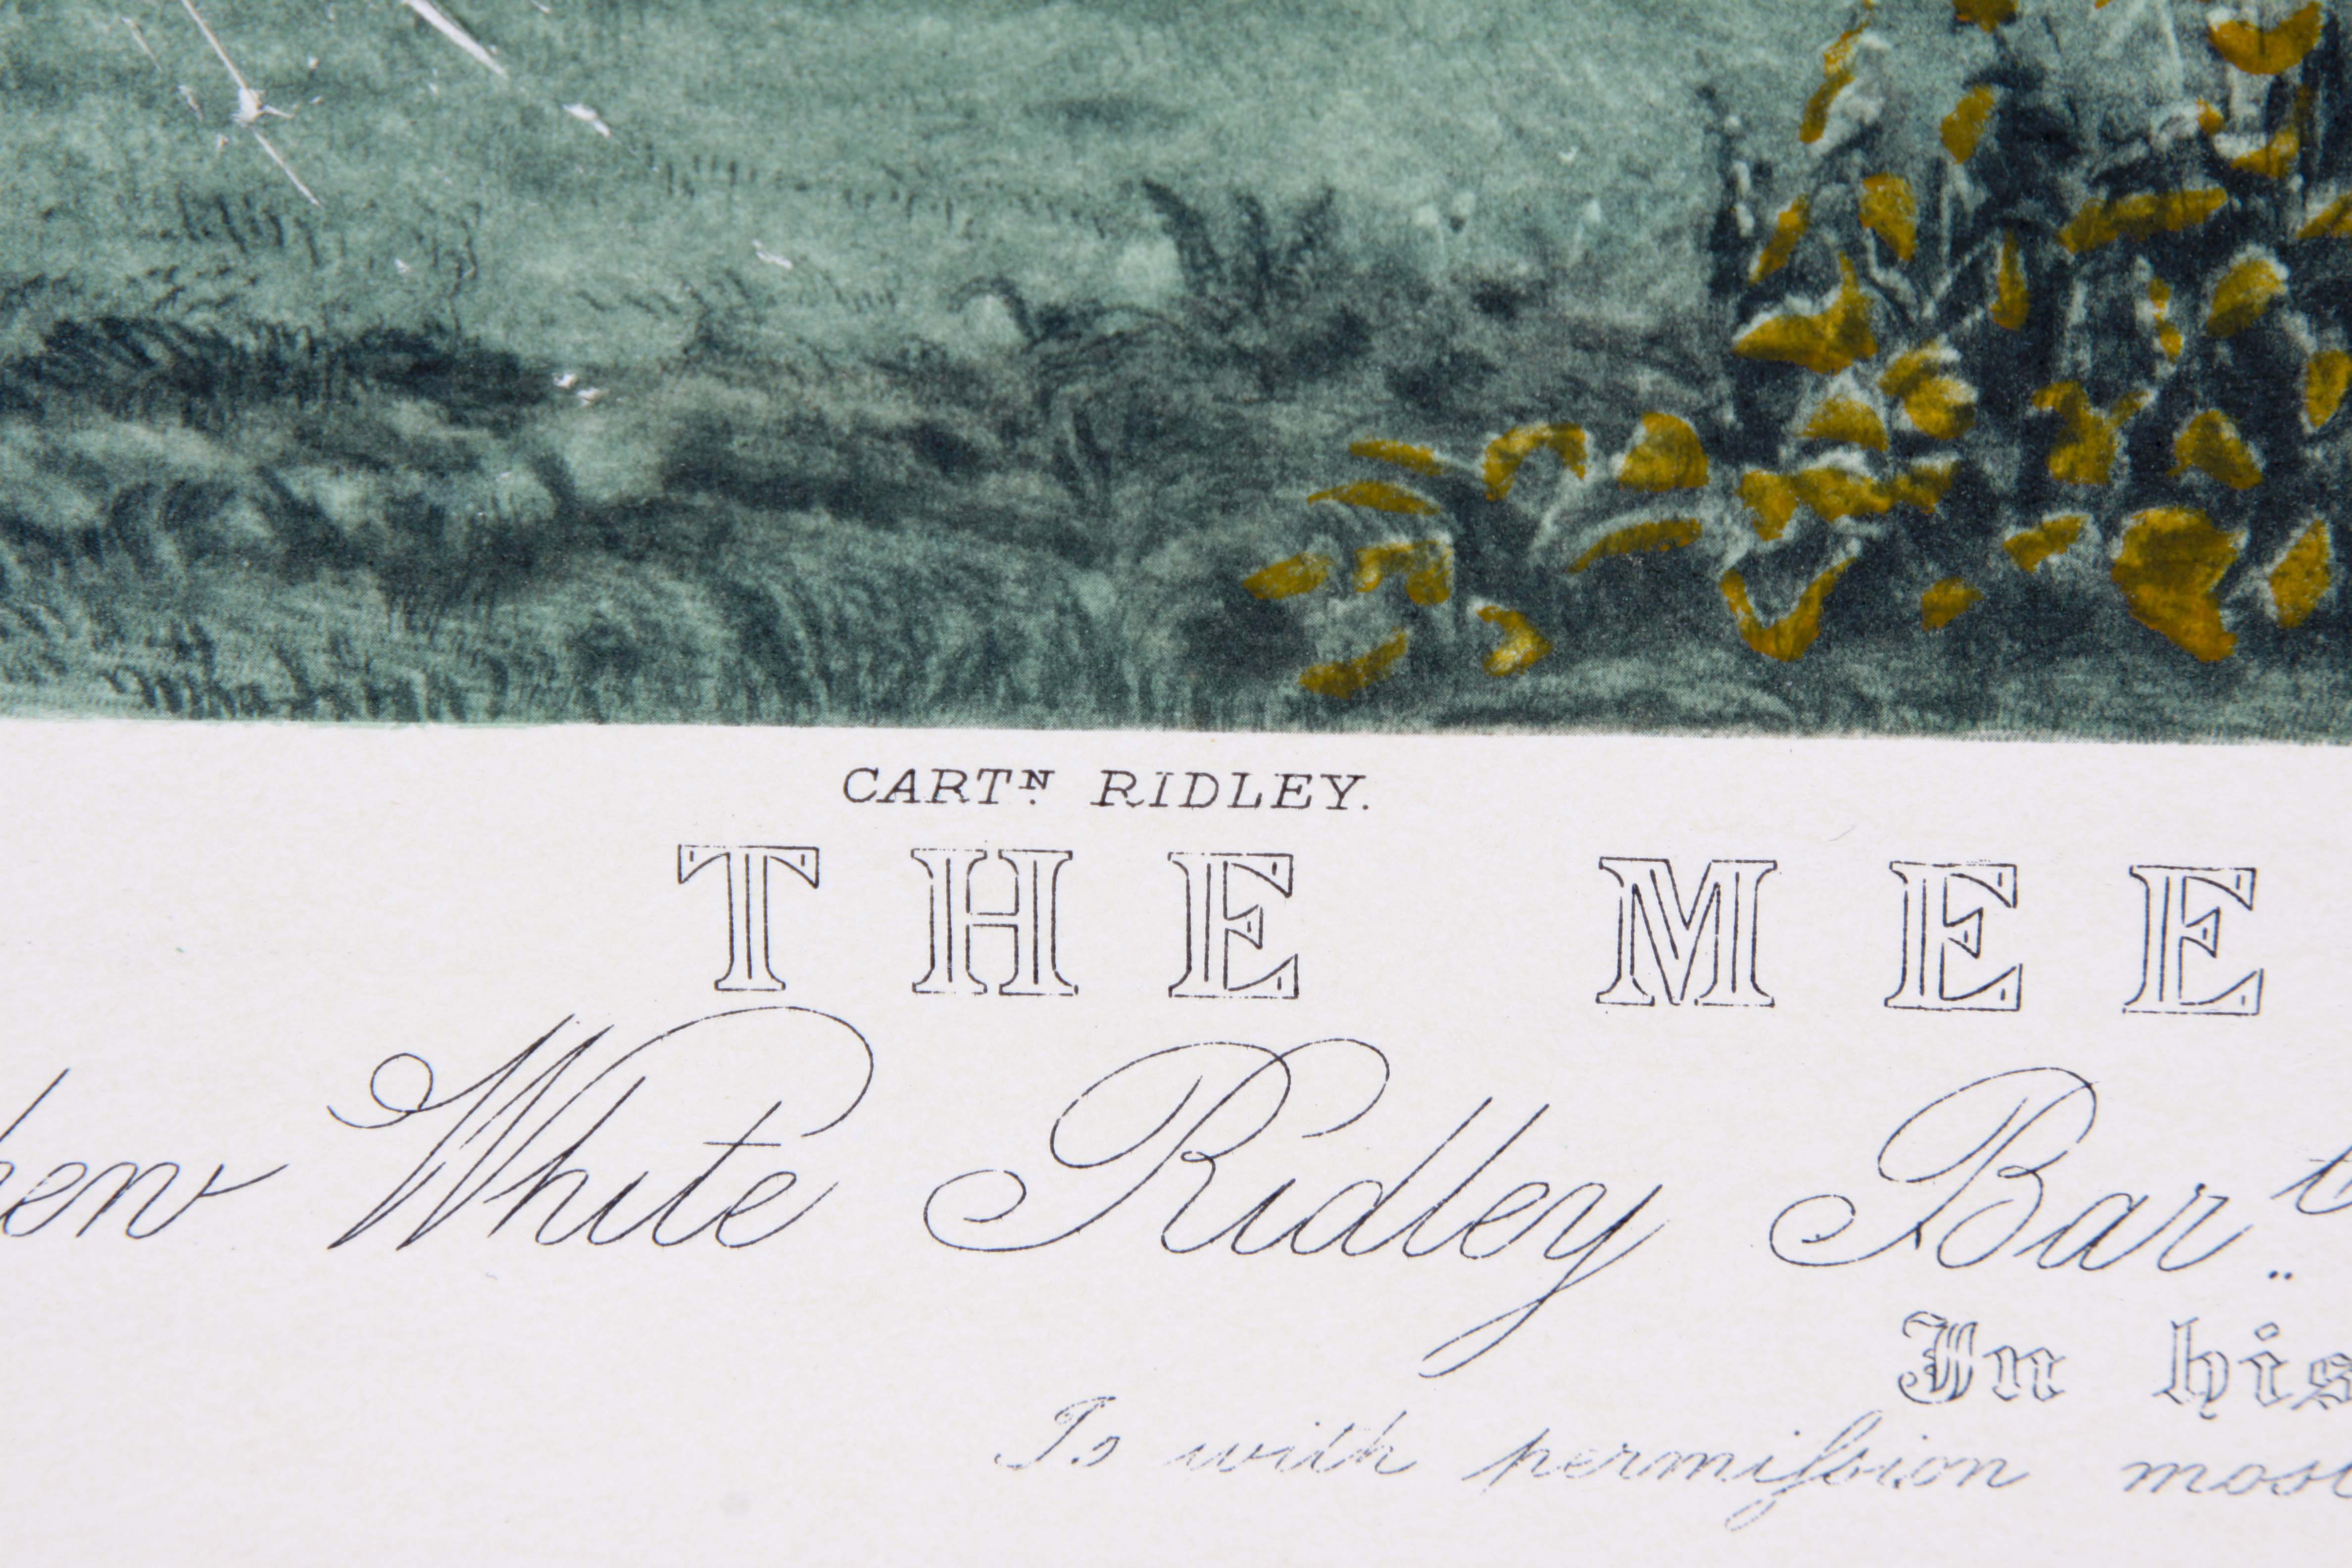 CARTN. RIDLEY.
THE MEE
hew White Ridley Bart..
In his
Is with permiſsion most